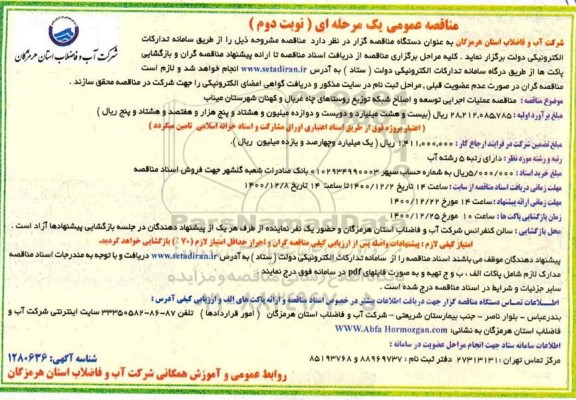 مناقصه عمومی یک مرحله ای ( نوبت دوم )
شرکت آب و فاضلاب استان هرمزگان
شرکت آب و فاضلاب استان هرمزگان به عنوان دستگاه مناقصه گزار در نظر دارد مناقصه مشروحه ذیل را از طریق سامانه تدارکات
الکترونیکی دولت برگزار نماید . کلیه مراحل برگزاری مناقصه از دریافت اسناد مناقصه تا ارائه پیشنهاد مناقصه گران و بازگشایی
پاکت ها از طریق درگاه سامانه تدارکات الکترونیکی دولت ( ستاد ) به آدرس www.setadiran.ir انجام خواهد شد و لازم است
مناقصه گران در صورت عدم عضویت قبلی , مراحل ثبت نام در سایت مذکور و دریافت گواهی امضای الکترونیکی را جهت شرکت در مناقصه محقق سازند .
موضوع مناقصه : مناقصه عملیات اجرایی توسعه و اصلاح شبکه توزیع روستاهای چاه غربال و کهنان شهرستان میناب
مبلغ برآورد اولیه : ۲۸,۲۱۲,۰۸۵,۷۸۵ ریال (بیست و هشت میلیارد و دویست و دوازده میلیون و هشتاد و پنج هزار و هفتصد و هشتاد و پنج ریال )
( اعتبار پروژه فوق از طریق اسناد اعتباری اوراق مشارکت و اسناد خزانه اسلامی تامین میگردد )
مبلغ تضمین شرکت در فرایند ارجاع کار : ۱,۴۱۱,۰۰۰,۰۰۰ ریال ( یک میلیارد وچهارصد و یازده میلیون ریال ).
رتبه و رشته مورد نظر : دارای رتبه ۵ رشته آب
مبلغ خرید اسناد : ۵/۰۰۰/۰۰۰ریال به شماره حساب سپهر ۰۱۰۲۹۳۴۹۹۰۰۰۳ بانک صادرات شعبه گلشهر جهت فروش اسناد مناقصه
مهلت زمانی دریافت اسناد مناقصه از سایت : ساعت ۱۴ تاریخ ۱۴۰۰/۱۲/۲ تا ساعت ۱۴ تاریخ ۱۴۰۰/۱۲/۸
مهلت زمانی ارائه پیشنهاد : ساعت ۱۴ مورخ ۱۴۰۰/۱۲/۲۲
زمان بازگشایی پاکت ها : ساعت ۱۰ مورخ ۱۴۰۰/۱۲/۲۵
محل بازگشایی : سالن کنفرانس شرکت آب و فاضلاب استان هرمزگان و حضور یک نفر نماینده از طرف هر یک از پیشنهاد دهندگان در جلسه بازگشایی پیشنهادها آزاد است .
امتیاز کیفی لازم : پیشنهادات واصله پس از ارزیابی کیفی مناقصه گران و احراز حداقل امتیاز لازم ( ۷۰ ) بازگشایی خواهد گردید.
پیشنهاد دهندگان موظف می باشند اسناد مناقصه را از سامانه تدارکات الکترونیکی دولت ( ستاد ) به آدرس www.setadiran.ir دریافت و با توجه به مندرجات اسناد مناقصه
مدارک لازم شامل پاکات الف ، ب و ج تهیه و به صورت فایلهای pdf در سامانه فوق درج نمایند .
سایر جزئیات و شرایط در اسناد مناقصه درج شده است .
اطلاعات تماس دستگاه مناقصه گزار جهت دریافت اطلاعات بیشتر در خصوص اسناد مناقصه و ارائه پاکت های الف و ارزیابی کیفی آدرس :
بندرعباس - بلوار ناصر - جنب بیمارستان شریعتی - شرکت آب و فاضلاب استان هرمزگان ( امور قراردادها ) تلفن ۸۷-۸۶-۳۳۳۵۰۵۸۲ سایت اینترنتی شرکت آب و
فاضلاب استان هرمزگان به نشانی: WWW.Abfa Hormozgan.com
اطلاعات سامانه ستاد جهت انجام مراحل عضویت در سامانه :
مرکز تماس تهران : ۲۷۳۱۳۱۳۱ دفتر ثبت نام : ۸۸۹۶۹۷۳۷ و ۸۵۱۹۳۷۶۸
شناسه آگهی: ۱۲۸۰۶۳۶
روابط عمومی و آموزش همگانی شرکت آب و فاضلاب استان هرمزگان